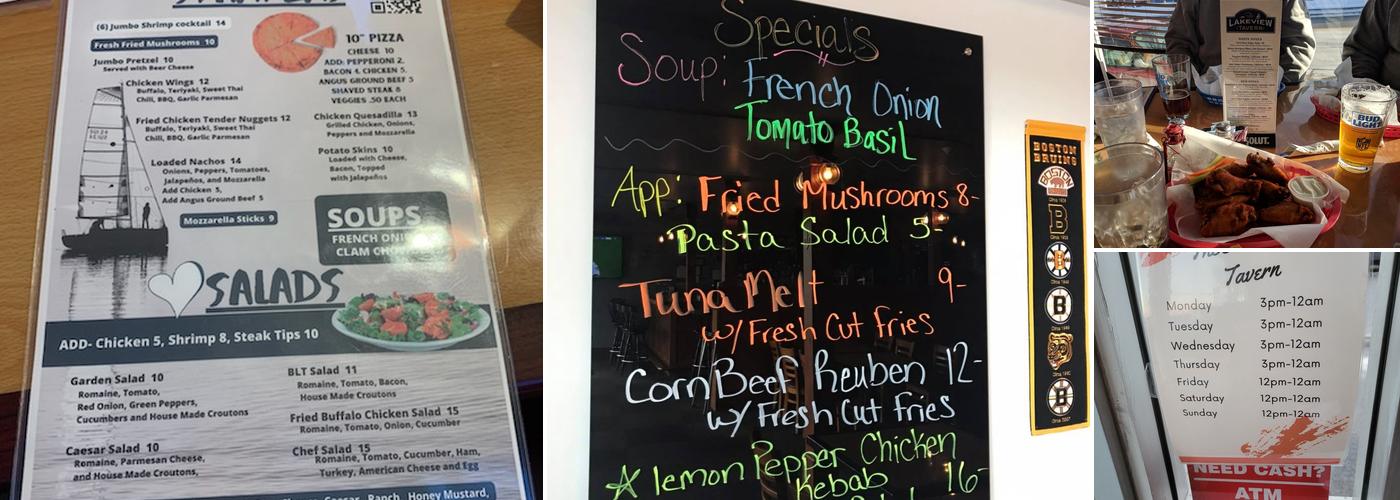 (6) Jumbo Shrimp cocktail 14
Fresh Fried Mushrooms 10
Jumbo Pretzel 10
Served with Beer Cheese
Chicken Wings 12
Buffalo, Teriyaki, Sweet Thai
Chili, BBQ, Garlic Parmesan
Fried Chicken Tender Nuggets 12
Buffalo, Teriyaki, Sweet Thai
Chili, BBQ, Garlic Parmesan
Loaded Nachos 14
Onions, Peppers, Tomatoes,
Jalapeños, and Mozzarella
Add Chicken 5,
Add Angus Ground Beef 5
Mozzarella Sticks 9
10" PIZZA
CHEESE 10
ADD: PEPPERONI 2,
BACON 4, CHICKEN 5,
ANGUS GROUND BEEF 5
SHAVED STEAK 8
VEGGIES .50 EACH
Chicken Quesadilla 13
Grilled Chicken, Onions,
Peppers and Mozzarella
Potato Skins 10
Loaded with Cheese,
Bacon, Topped
with Jalapeños
SOUPS
FRENCH ONION
CLAM CHOWDER
SALADS
ADD- Chicken 5, Shrimp 8, Steak Tips 10
Garden Salad 10
Romaine, Tomato,
Red Onion, Green Peppers,
Cucumbers and House Made Croutons
Caesar Salad 10
Romaine, Parmesan Cheese,
and House Made Croutons,
BLT Salad 11
Romaine, Tomato, Bacon,
House Made Croutons
Fried Buffalo Chicken Salad 15
Romaine, Tomato, Onion, Cucumber
Chef Salad 15
Romaine, Tomato, Cucumber, Ham,
Turkey, American Cheese and Egg
Caesar, Ranch, Honey Mustard,
Specials
Soup: French Onion
Tomato Basil
App: Fried Mushrooms 8-
Pasta Salad 5-
Tuna Melt 9-
w/ Fresh Cut Fries
Corn Beef Reuben 12-
w/ Fresh Cut Fries
lemon Pepper Chicken
Kebab 16-
BOSTON
BRUINS
BOSTON
B
B
B
B
LAKEVIEW
TAVERN
SOLUT.
BUD
LIGHT
NFL
Tavern
Monday 3pm-12am
Tuesday 3pm-12am
Wednesday 3pm-12am
Thursday 3pm-12am
Friday 12pm-12am
Saturday 12pm-12am
Sunday 12pm-12am
NEED CASH?
ATM